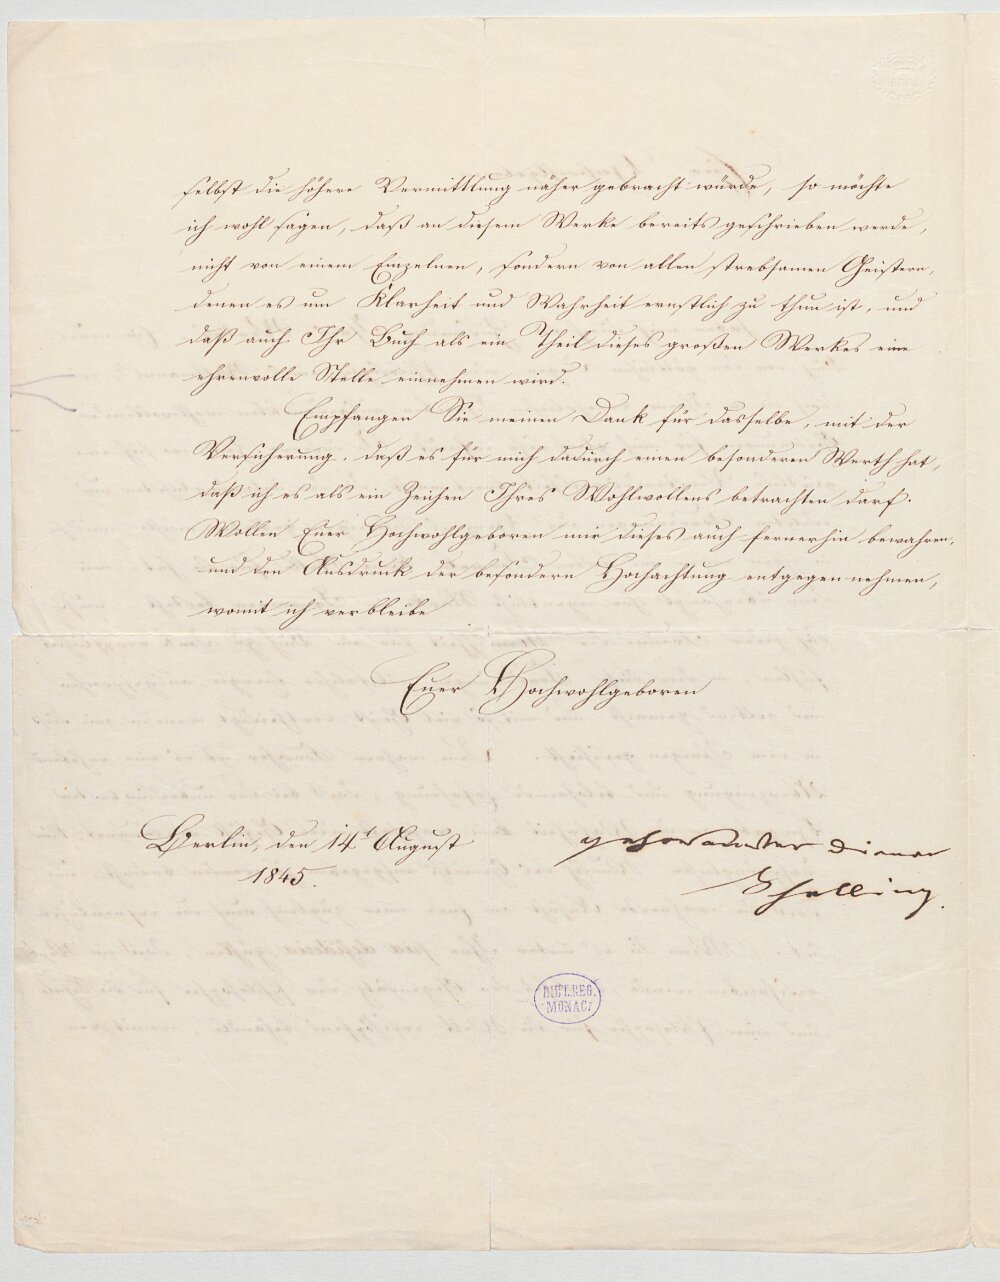 selbst die höhere Vermittlung näher gebracht würde, so möchte
ich wohl sagen, daß an diesem Werke bereits geschrieben werde,
nicht von einem Einzelnen, sondern von allen strebsamen Geistern,
denen es um Klarheit und Wahrheit ernstlich zu thun ist, und
daß auch Ihr Buch als ein Theil dieses großen Werkes eine
ehrenvolle Stelle einnehmen wird.
Empfangen Sie meinen Dank für dasselbe, mit der
Versicherung, daß es für mich dadurch einen besonderen Werth hat,
daß ich es als ein Zeichen Ihres Wohlwollens betrachten darf.
Wollen Euer Hochwohlgeboren mir dieses auch fernerhin bewahren,
und den Ausdruck der besondern Hochachtung entgegen nehmen,
womit ich verbleibe
Euer Hochwohlgeboren
Berlin, den 14t August
1845.
gehorsamster Diener
Schelling.
BIBL. REG.
MONAC.